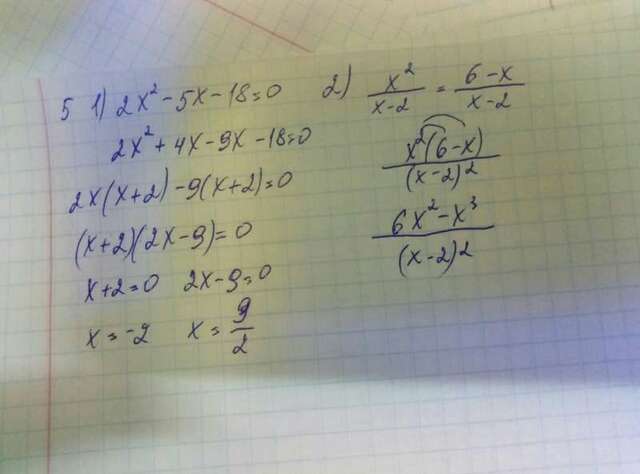 5 1) 2x² - 5x - 18 = 0
2x² + 4x - 9x - 18 = 0
2x(x+2) - 9(x+2) = 0
(x+2)(2x-9) = 0
x+2=0 2x-9=0
x = -2 x = 9/2
2) x²/(x-2) = (6-x)/(x-2)
x²(6-x)/(x-2)²
(6x² - x³)/(x-2)²